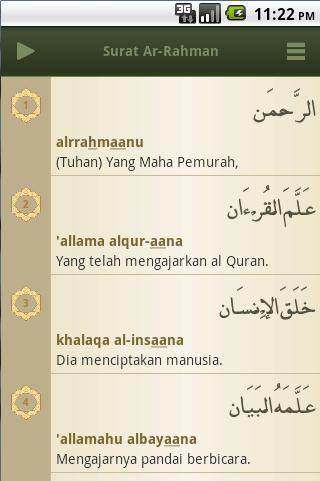 3G 11:22 PM
Surat Ar-Rahman
1
الرَّحمَن
alrrahmaanu
(Tuhan) Yang Maha Pemurah,
2
عَلَّمَ القُرءَان
'allama alqur-aana
Yang telah mengajarkan al Quran.
3
خَلَقَ الإِنسَان
khalaqa al-insaana
Dia menciptakan manusia.
4
عَلَّمَهُ البَيَان
'allamahu albayaana
Mengajarnya pandai berbicara.